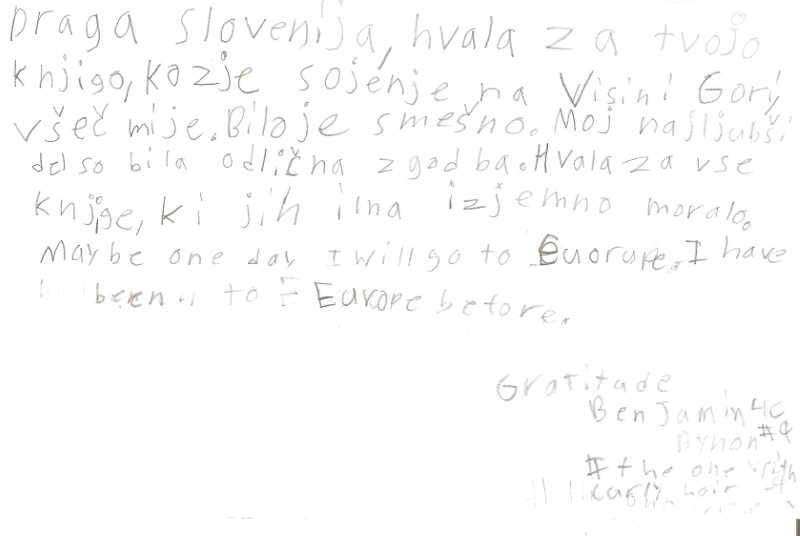 Draga Slovenija, hvala za tvojo
knjigo, kozje sojenje na Visini Gori,
všeč mi je. Bilo je smešno. Moj najljubši
del so bila odlična zgodba. Hvala za vse
knjige, ki jih ilna izjemno moralo.
Maybe one day I will go to Euorupe. I have
been to Europe before.
Gratitude
Benjamin 4C
Bynon #9
# the one with
hair